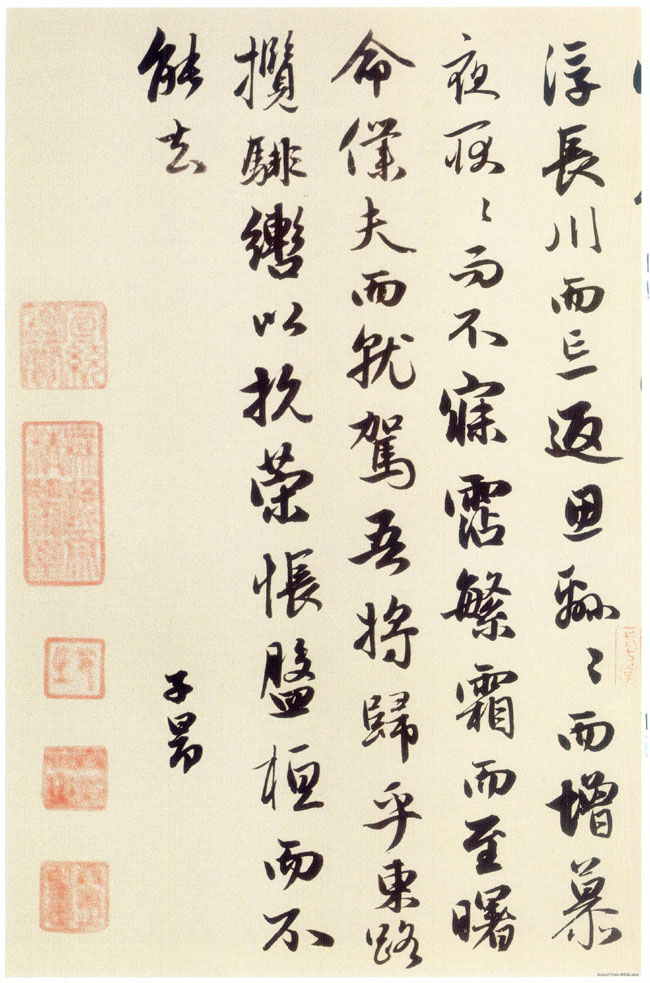 浮長川而忘返思緜々而增慕
夜耿々而不寐霑繁霜而至曙
命僕夫而就駕吾將歸乎東路
攬騑轡以抗策悵盤桓而不
能去
子昂